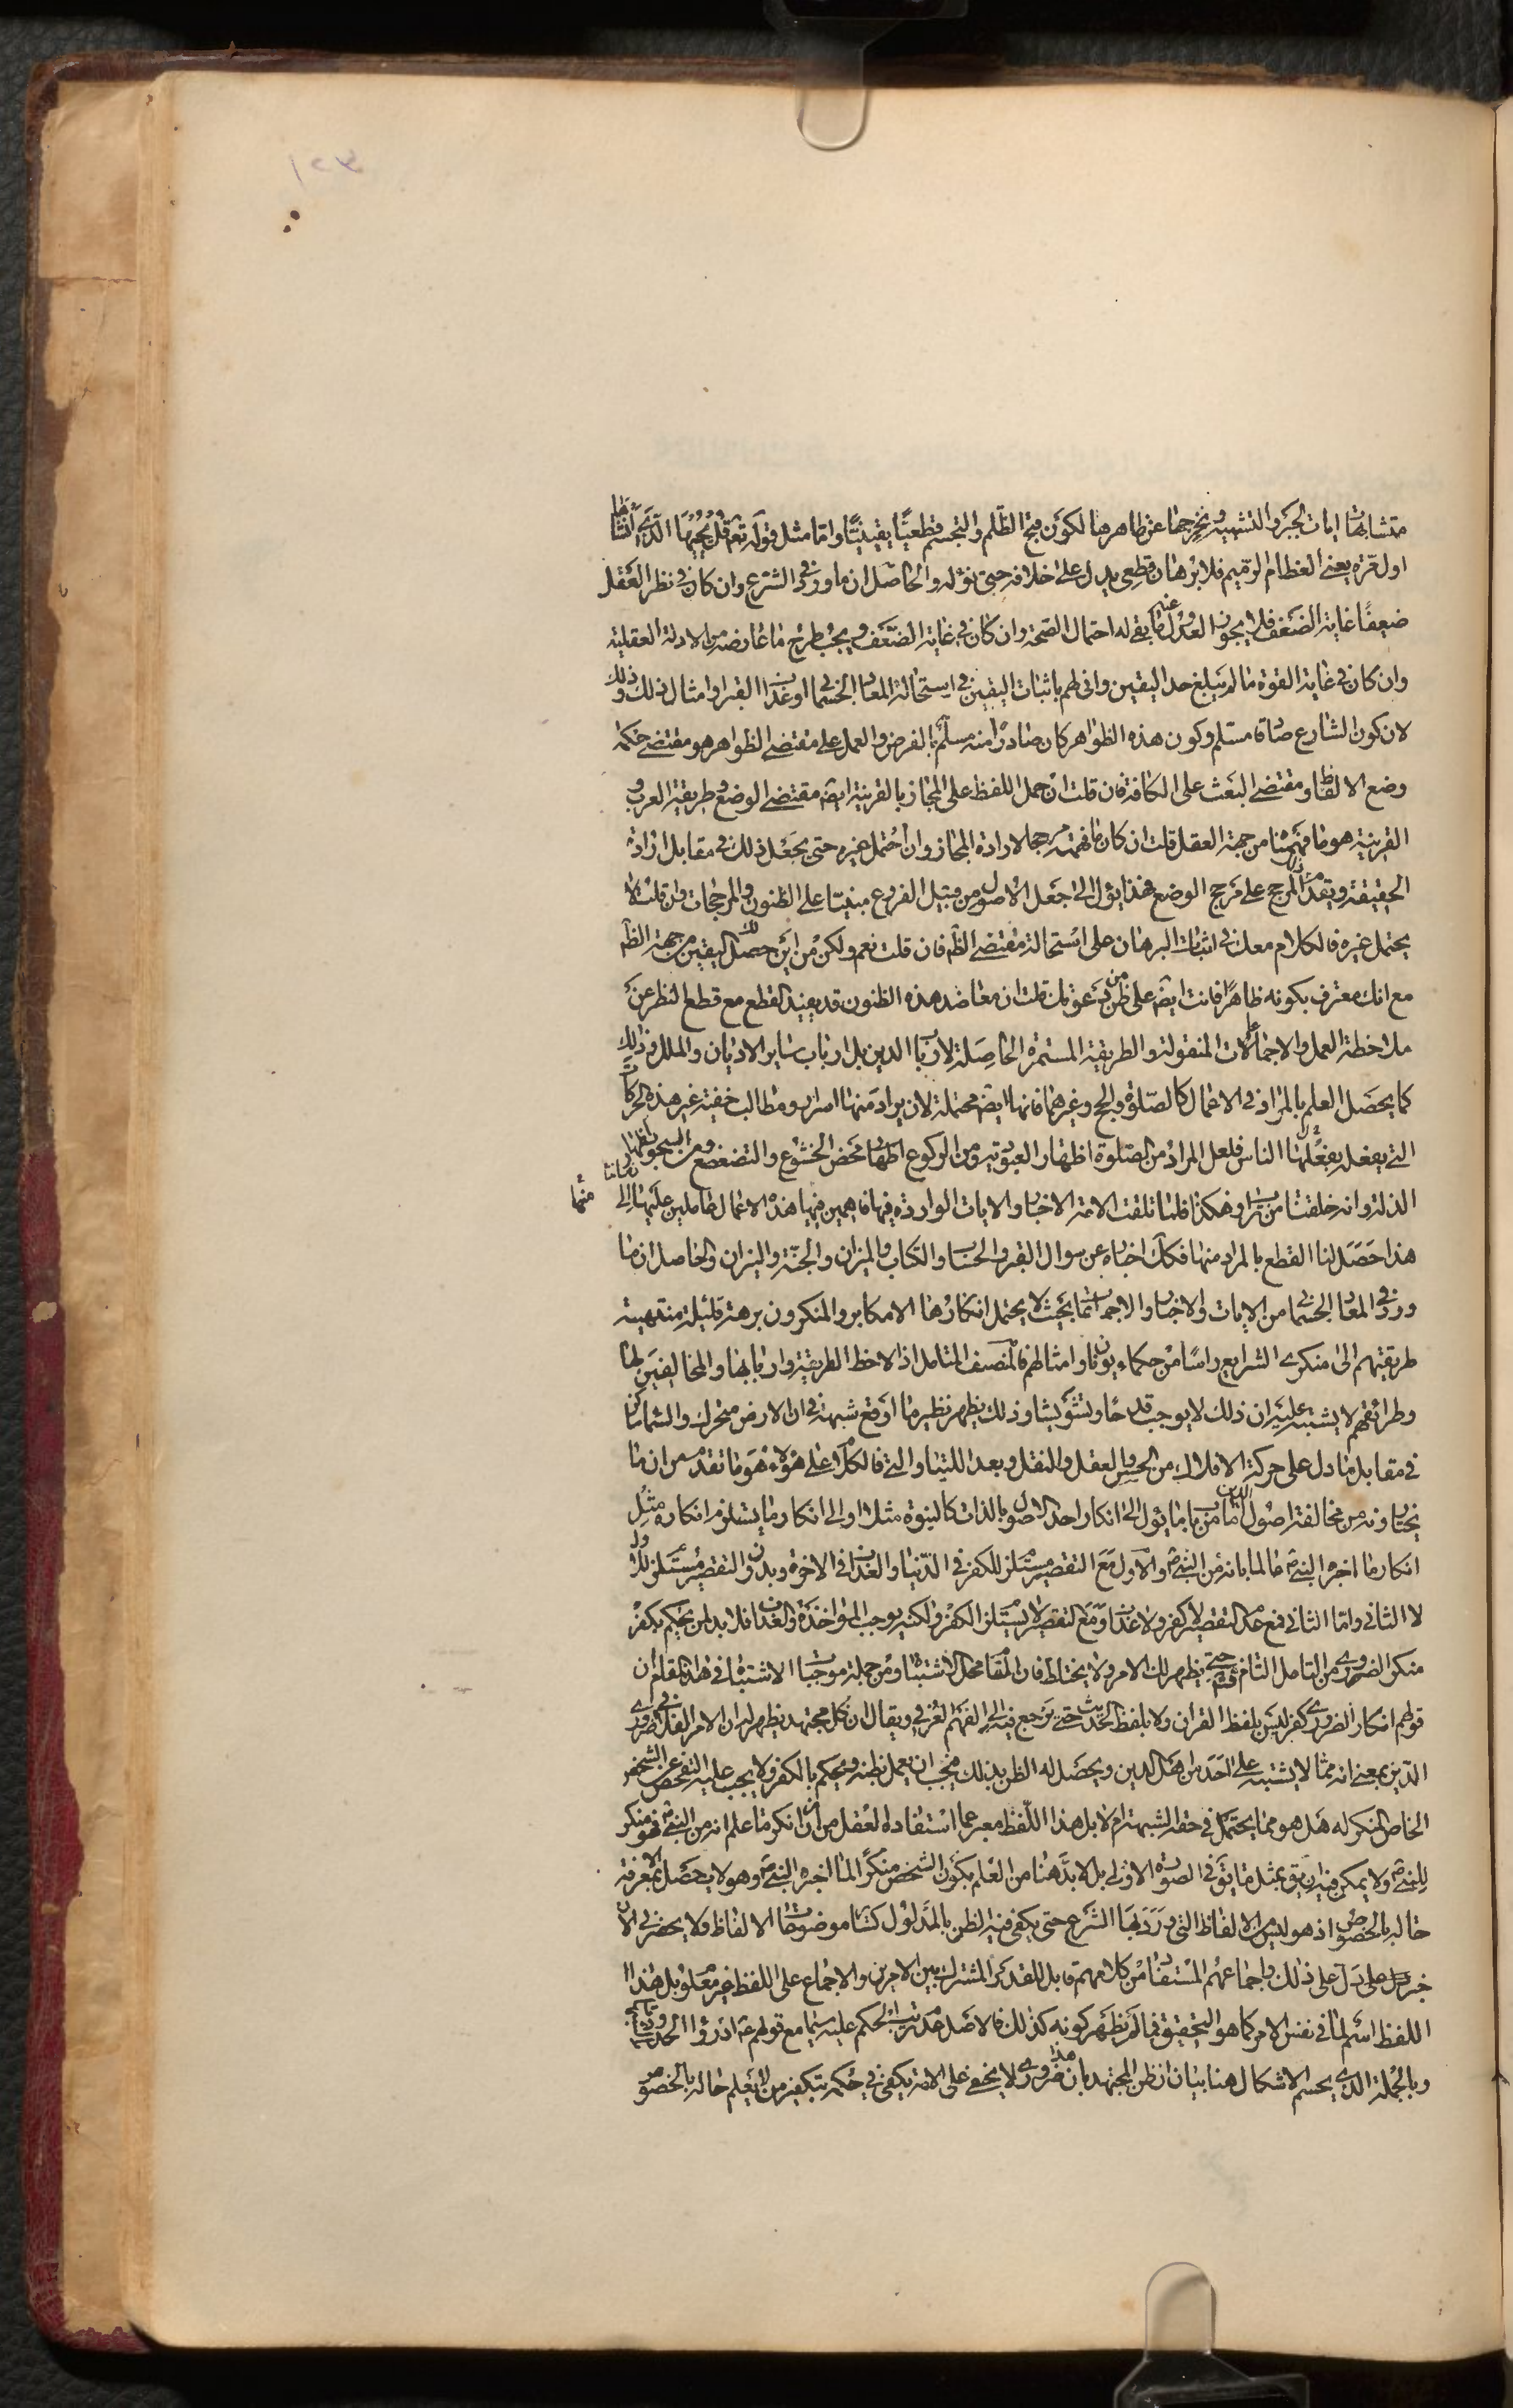 متشابهات ايات الجبر والتشبيه ونخرجها عن ظاهرها لكون قبح الظلم والتجسم قطعيّا يقينيّا وامّا مثل قوله تعم قُل يُحْييهَا الّذي اَنشَأهَا
اول مَرّه يعني العظام الرميم فلا برهان قطعي يدل على خلافه حتى نؤله والحاصل ان ما ورد في الشرع وان كان في نظر العقل
ضعيفًا غاية الضعف فلا يجوز العدول عنه ما بقي له احتمال الصّحة وان كان في غاية الضّعف ويجب طرح ما عارضه من الادلة العقلية
وان كان في غاية القوة ما لم يبلغ حد اليقين وانى لهم باثبات اليقين في استحالة المعاد الجسماني او عذاب القبر وامثال ذلك وذلك
لان كون الشارع صادقا مسلم وكون هذه الظواهر كان صادرًا منه مسلّم بالفرض والعمل على مقتضى الظواهر هو مقتضى حكمة
وضع الالفاظ ومقتضى البعث على الكافة فان قلت ان حمل اللفظ على المجاز بالقرينة ايضا مقتضى الوضع وطريقة العرب و
القرينة هو ما فهمنا من جهة العقل قلت ان كان ما فهمته مرجحا لارادة المجاز وان احتمل غيره حتى يجعل ذلك في مقابل ارادة
الحقيقة ويقدم هذا المرجح على مرجح الوضع فهذا يؤل الى جعل الاصول من قبيل الفروع مبنيّا على الظنون والمرجحات وان قلت لا
يحتمل غيره فالكلام معك في اثبات البرهان على استحالة مقتضى الظّم فان قلت نعم ولكن من اين حصل لك اليقين من جهة الظّم
مع انك معترف بكونه ظاهرًا فانت ايضا على ظن من دعواك قلت ان معاضد هذه الظنون قد يفيد القطع مع قطع النظر عن
ملاحظة العمل والاجماعات المنقولة والطريقة المستمرة الحاصلة لارباب الدين بل ارباب ساير الاديان والملل وذلك
كما يحصل العلم بالمراد في الاعمال كالصّلوة والحج وغيرهما فانها ايضا محتملة لان يراد منها اسرار ومطالب خفية غير هذه الحركات
التي يفعلها الناس فلعل المراد من الصّلوة اظهار العبودية ومن الركوع اظهار محض الخشوع والتضعضع ومن السجود اظهار
الذلة وانه خلقنا من تراب وهكذا فلما تلقت الامة الاخبار والايات الواردة فيها فاهمين فيها هذه الاعمال عاملين عليها الى زماننا منها
هذا حَصَل لنا القطع بالمراد منها فكك اخباره عن سوال القبر والحساب والكتاب والميزان والجنّة والنيران والحاصل ان ما
ورد في المعاد الجسماني من الايات والاخبار والاجماعات مما بحيث لا يحتمل انكارها الا مكابر والمنكرون برهة قليلة منتهية
طريقتهم الى منكري الشرايع راسًا من حكماء يونان وامثالهم فالمنصف المتامل اذا لاحظ الطريقة واربابها والمخالفين لها
وطرائقهم لا يشتبه عليه ان ذلك لا يوجب قدحًا وتشويشا وذلك يظهر نظير ما اوقع شبهة في ان الارض متحرك والسّماء ساكن
في مقابل ما دل على حركة الافلاك من الحس والعقل والنقل وبعد اللتيا والتي فالكلام على هؤلاء هو ما تقدم من ان ما
يختارونه من مخالفة اصول الدين اما من باب ما يؤل الى انكار احد الاصول بالذات كالنبوة مثلا او الى انكار ما يستلزم انكاره مثل
انكار ما اخبره النبي ص عالما بانه من النبي ص والاول مع التقصير مستلزم للكفر في الدّنيا والعذاب في الاخرة وبدون التقصير مستلزم للاول
لا الثاني وامّا الثاني فمع عدم التقصير لا كفر ولا عذاب ومع التقصير لا يستلزم الكفر ولكنه يوجب المؤاخذة والعذاب فلا بد لمن يحكم بكفر
منكر الضروري من التامل التام حتى يظهر لك الامر ولا يختلط فان المقام محل الاشتباه ومن جملة موجبات الاشتباه في هذا المقام ان
قولهم انكار الضروري كفر ليس بلفظ القران ولا بلفظ الحديث حتى يرجع فيه الى الفهم العرفي ويقال ان كل مجتهد يظهر له ان الامر الفلاني ضروري
الدّين بمعنى انه ممّا لا يشتبه على احَد من اهل الدين ويحصل له الظن بذلك فيجب ان يعمل بظنه ويحكم بالكفر ولا يجب عليه التفحص عن الشخص
الخاص المنكر له هل هو مما يحتمل في حقه الشبهة ام لا بل هذا اللّفظ معبر عما استفاده العقل من ان من انكر ما علم انه من النبي ص فهو منكر
للنبي ص ولا يمكن فيه ان يقال بمثل ما يقال في الصورة الاولى بل لا بدّ هنا من العلم بكون الشخص منكرًا لما اخبره النبي ص وهو لا يحصل الا بمعرفة
حاله بالخصوص اذ هو ليس من الالفاظ التي ورَدَ بهَا الشّرع حتى يكفي فيه الظن بالمدلول كساير موضوعات الالفاظ ولا يحضرني الآن
خبر يدل على ذلك واجماعهم المستفاد من كلامهم قابل للقدر المشترك بين الامرين والاجماع على اللفظ غير معلوم بل هذا
اللفظ اسم لما في نفس الامر كما هو التحقيق فما لم يظهر كونه كذلك فالاصل عدم ترتب الحكم عليه سيما مع قولهم ع ادرؤا الحدود بالشبهات
وبالجملة الذي يحسم الاشكال هنا بيان ان ظن المجتهد بان هذا ضروري لا يخفى على الامة يكفي في حكمه بتكفير من لا يعلم حاله بالخصوص